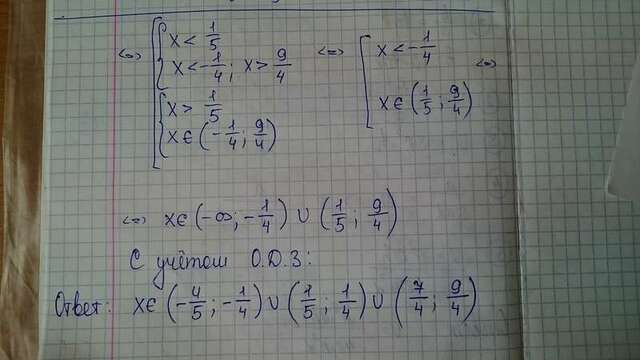 <=> [ { x < 1/5
x < -1/4 ; x > 9/4
{ x > 1/5
x ∈ (-1/4 ; 9/4)
<=> [ x < -1/4
x ∈ (1/5 ; 9/4) <=>
<=> x ∈ (-∞; -1/4) ∪ (1/5 ; 9/4)
С учётом О.Д.З:
Ответ: x ∈ (-4/5 ; -1/4) ∪ (1/5 ; 1/4) ∪ (7/4 ; 9/4)